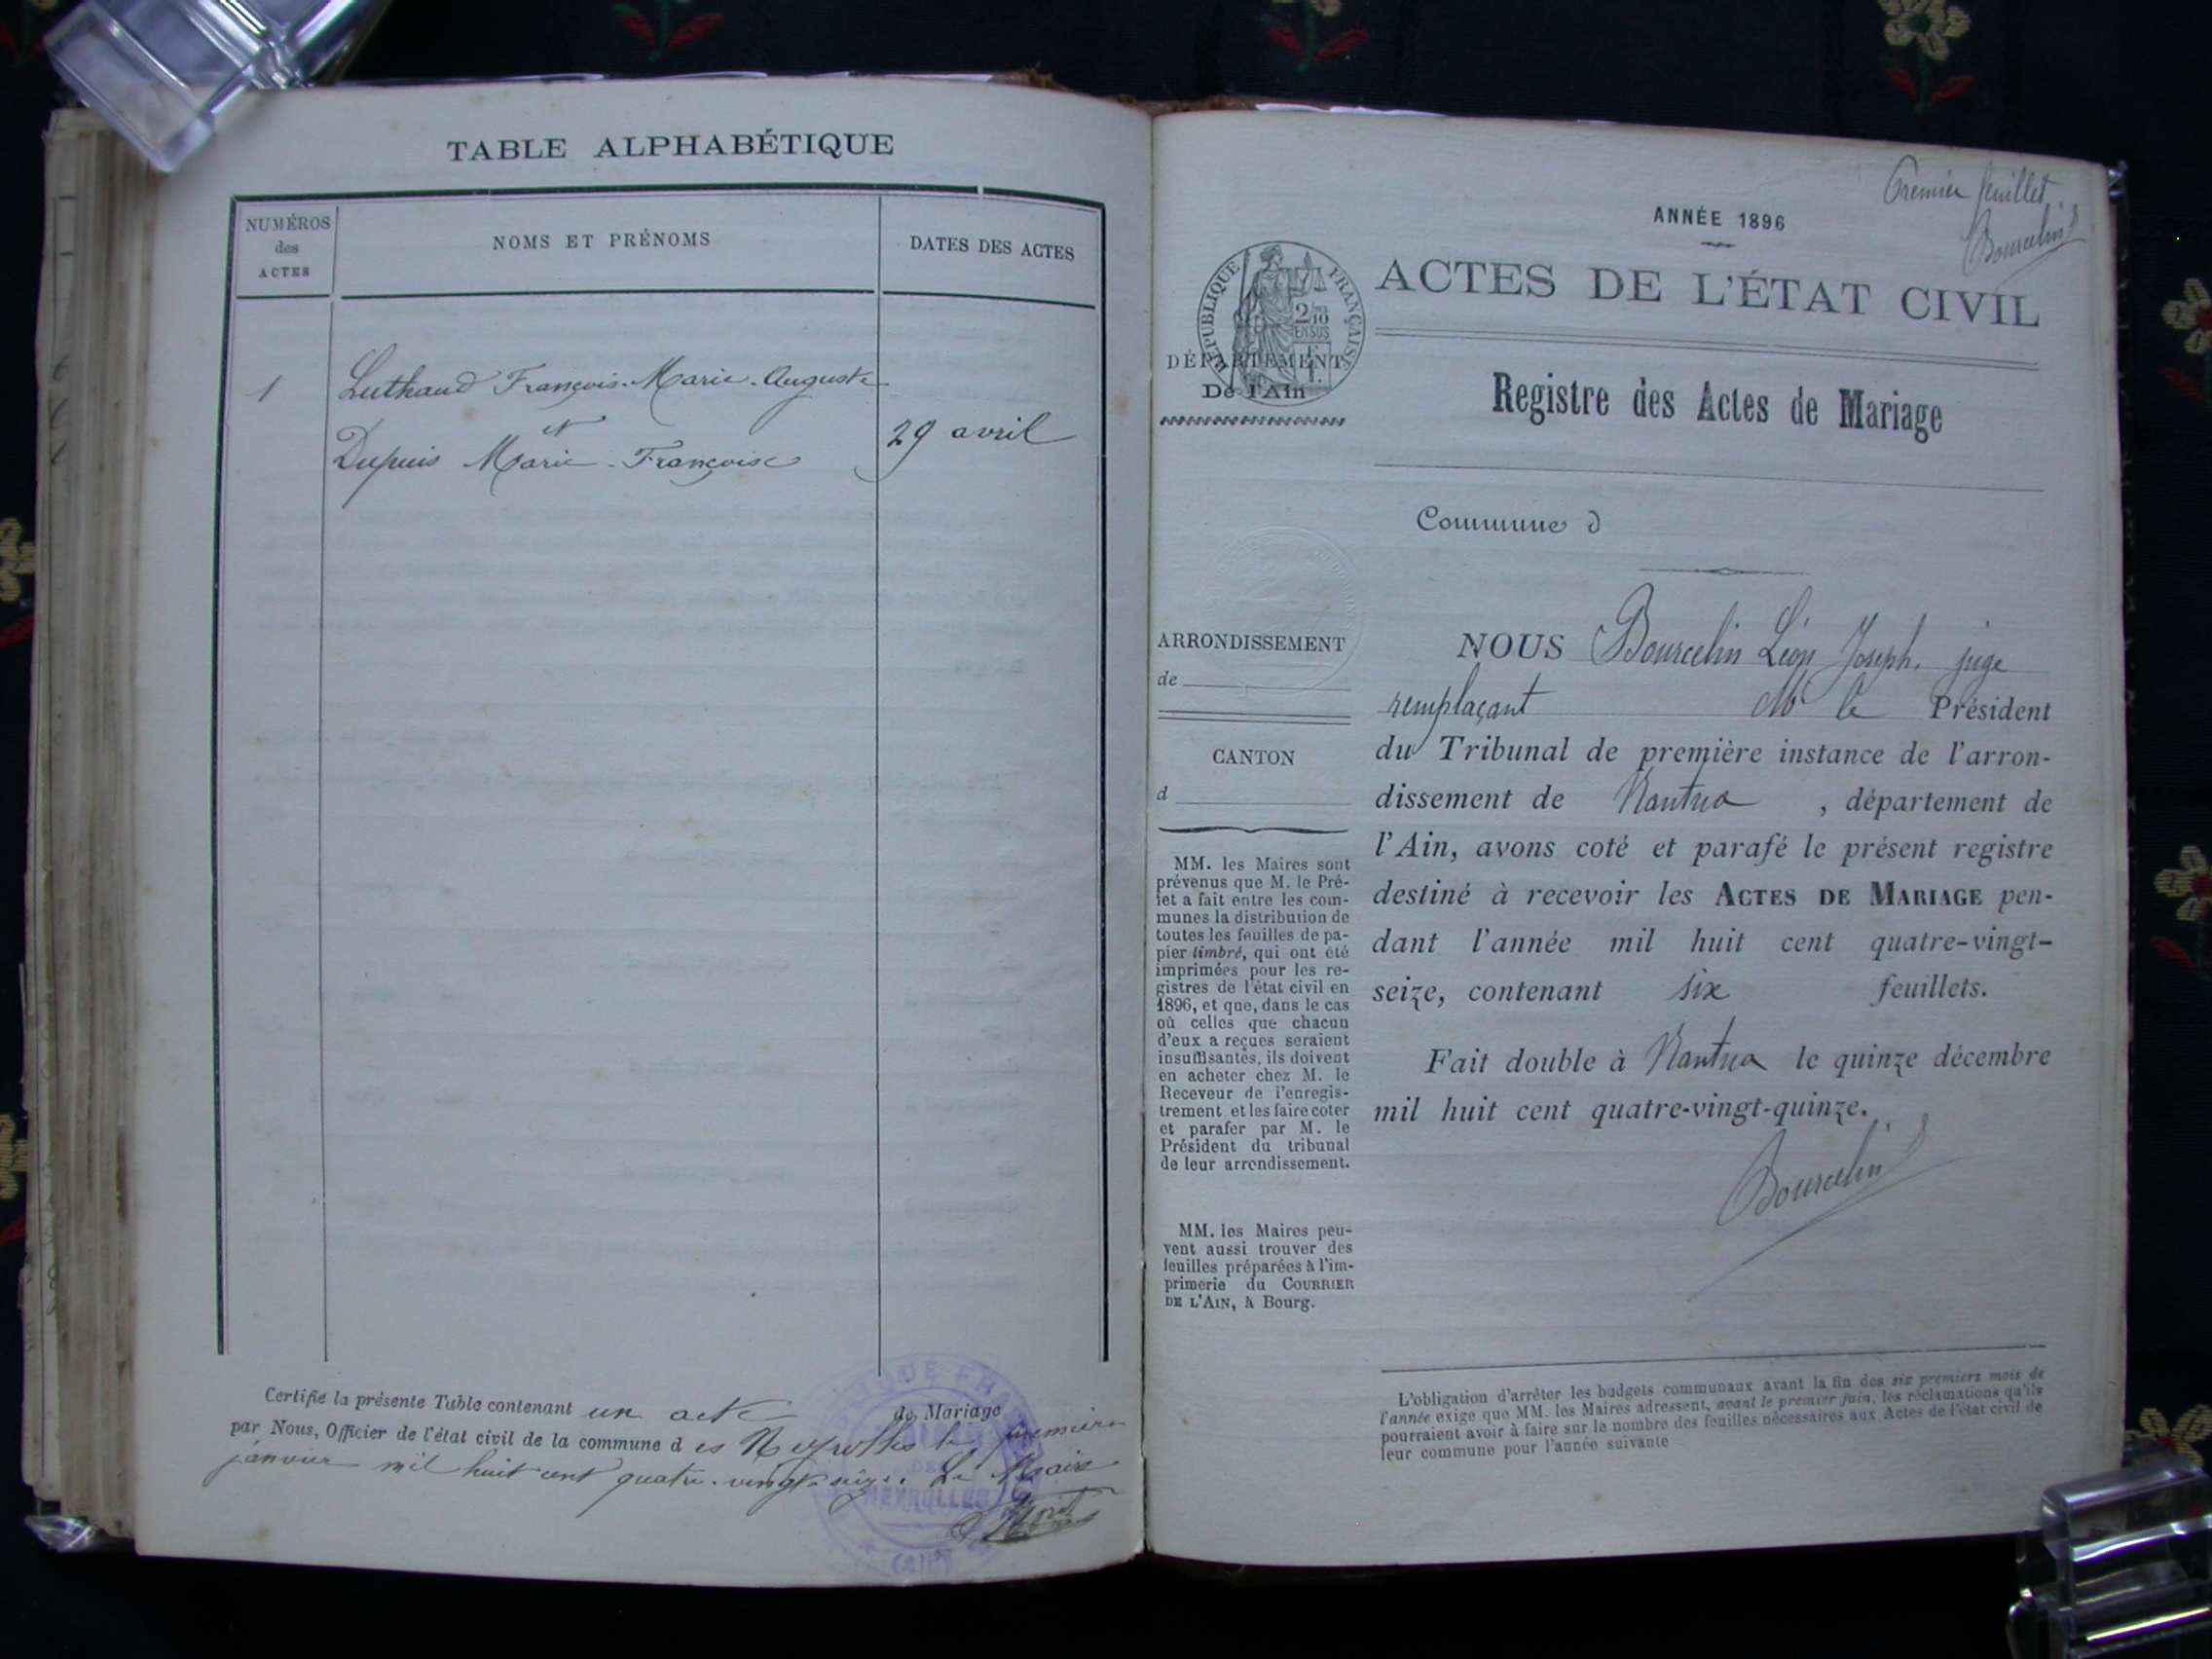 TABLE ALPHABÉTIQUE
NUMÉROS
des
ACTES
NOMS ET PRÉNOMS
DATES DES ACTES
1
Luthaud François-Marie-Auguste
et
Dupuis Marie-Françoise
29 avril
Certifié la présente Table contenant un acte de Mariage
par Nous, Officier de l'état civil de la commune d es Neyrolles le premier
janvier mil huit cent quatre-vingt-seize. Le Maire
NEYROLLES
(AIN)
Premier feuillet
Bourcelin
ANNÉE 1896
ACTES DE L'ÉTAT CIVIL
RÉPUBLIQUE FRANÇAISE
2/10
EN SUS
DÉPARTEMENT
De l'Ain
Registre des Actes de Mariage
Commune d
ARRONDISSEMENT
de
CANTON
d
MM. les Maires sont
prévenus que M. le Pré-
fet a fait entre les com-
munes la distribution de
toutes les feuilles de pa-
pier timbré, qui ont été
imprimées pour les re-
gistres de l'état civil en
1896, et que, dans le cas
où celles que chacun
d'eux a reçues seraient
insuffisantes, ils doivent
en acheter chez M. le
Receveur de l'enregis-
trement et les faire coter
et parafer par M. le
Président du tribunal
de leur arrondissement.
MM. les Maires peu-
vent aussi trouver des
feuilles préparées à l'im-
primerie du COURRIER
DE L'AIN, à Bourg.
NOUS Bourcelin Léon Joseph, juge
remplaçant Mr le Président
du Tribunal de première instance de l'arron-
dissement de Nantua , département de
l'Ain, avons coté et parafé le présent registre
destiné à recevoir les ACTES DE MARIAGE pen-
dant l'année mil huit cent quatre-vingt-
seize, contenant six feuillets.
Fait double à Nantua le quinze décembre
mil huit cent quatre-vingt-quinze.
Bourcelin
L'obligation d'arrêter les budgets communaux avant la fin des six premiers mois de
l'année exige que MM. les Maires adressent, avant le premier juin, les réclamations qu'ils
pourraient avoir à faire sur le nombre des feuilles nécessaires aux Actes de l'état civil de
leur commune pour l'année suivante